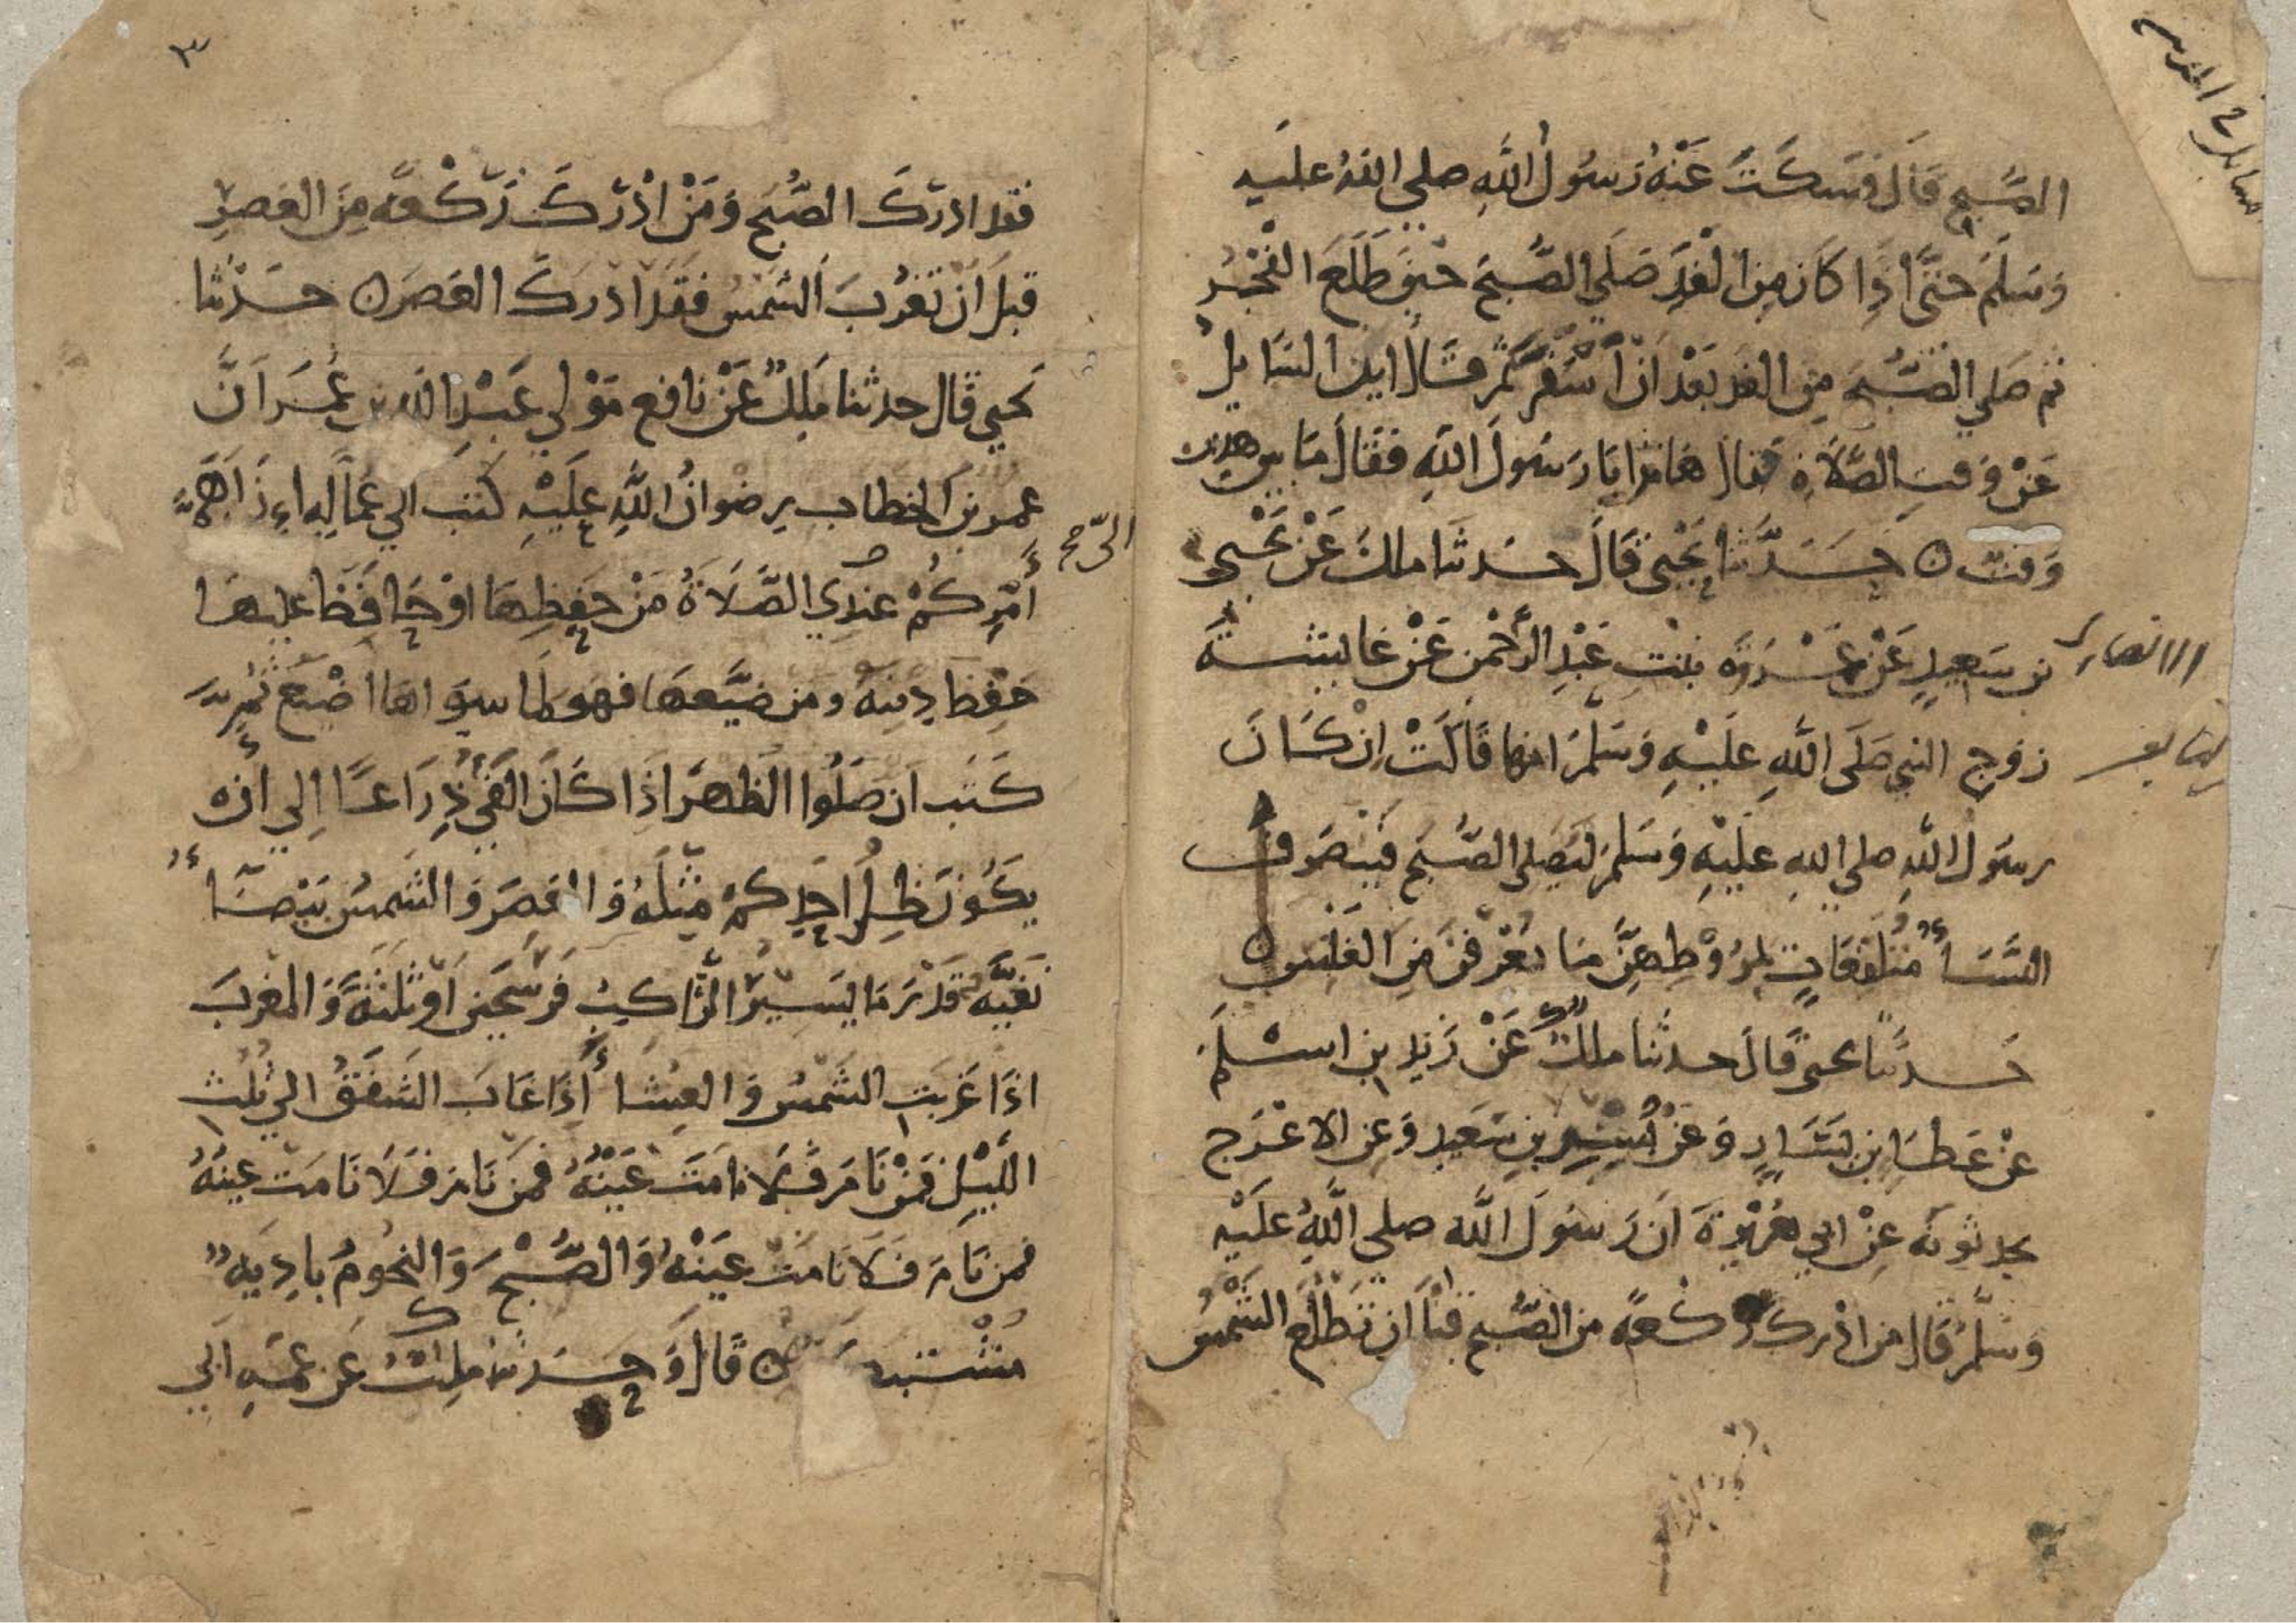 الصُّبحِ قَالَ فَسَكَتَ عَنْهُ رَسُولُ اللَّهِ صلي اللهُ عليهِ
وَسَلَمَ حَتَّى اذَا كَانَ مِنَ الْغَدِ صَلَي الصُّبحَ حِينَ طَلَعَ الفَجْرُ
ثم صَلي الصُّبْحَ مِن الغد بَعْدَ اَنْ اَسْفَرَ ثم قَالَ اين السَايِلُ
عَنْ وَقتِ الصَّلَاةِ فقال هَا نذا يَا رَسُولَ اللَّهِ فَقَالَ مَا بين هذين
وَقت ه حَدَّثَنا يَحْيَى قَالَ حَدثنا ملك عَنْ يَحْيَى
بن سَعِيدٍ عَنْ عَمْرَةَ بنْتِ عَبْدِ الرَّحْمن عَنْ عَايِشَةَ
الانصاري
زوجِ النبي صَلَى اللَّهِ عَلَيْهِ وَسَلَّمَ انها قَالَتْ اِنْ كَانَ
رسَولُ اللَّهِ صلي اللهِ عَلَيْهِ وَسَلمَ ليُصَلِي الصُّبحَ فَيَنْصَرف
النِسَاءُ مُتَلَفِّعَاتٍ بمُرُوْطِهِنَّ مَا يُعْرَفنَ مِنَ الغَلَسِ ه
حَدثَنا يحيى قَالَ حدثنا ملكٌ عَنْ زَيْدِ بنِ اسْلَمَ
عنْ عَطَا بنِ يَسَارٍ وَعَنْ بُسْرِ بنِ سَعِيدٍ وَعَنِ الاعْرَجِ
يحدثونهُ عَنْ ابي هُرَيْرةَ اَنَ رَسُولَ اللَّه صلى اللَّهِ عَلَيْهِ
وَسَلَّمَ قَالَ من ادْرك ركْعةً من الصُّبحِ قبلَ ان تَطْلُعَ الشَّمْسُ
٣
فَقَد ادرَكَ الصُّبحَ وَمَنْ ادْرَكَ رَكْعَةً مِنَ العَصرِ
قبلَ اَن تَغرُبَ الشَمسُ فَقَد ادركَ العَصرَ ه حَدثنا
يحيي قَال حدثنا مَلِكٌ عَنْ نافعٍ مَوْلي عَبْدِ الله بن عُمَرَ اَنَّ
عمر بن الخطاب رضوانُ اللَّهِ عَلَيْهِ كتبَ الي عُمالِهِ اِنَّ اَهَمَّ
أَمْرِكُمْ عِندِي الصَّلَاةُ مَنْ حَفِظِهَا اوْ حَافَظَ عليها
حَفِظَ دِينهُ ومن ضَيَّعهَا فهو لما سِوَاها اضْيَعُ ثُمَّ
كَتَب اَن صَلُوا الظهرَ اذَا كَانَ الفَيْءُ ذِرَاعًا اِلي اَنْ
يَكُونَ ظِلُ اَحَدِكمْ مِثلَهُ وَالعصِرَ وَالشَمسُ بَيْضَاءُ
نَقِيَّةٌ قَدْرَ مَا يَسِيْرُ الرَّاكِبُ فَرْسَخَيْنِ اَوْ ثَلَثَةً وَالمغربَ
اذَا غَربتِ الشَّمسُ وَالعِشَاءُ اِذَا غَابَ الشَفَقُ الي ثُلُثِ
اللَّيْلِ فَمَنْ نَامَ فَلَا نامَتَ عَيْنُهُ فمَنْ نَامَ فَلَا نَامَت عينُهُ
فمن نَامَ فَلَا نَامَتْ عَيْنُهُ وَالصُّبْحَ وَالنجُومُ بَادِيَةٌ
مُشْتَبِكَة ه قَالَ وَحَدثنا مَلِكٌ عَن عَمِهِ ابي